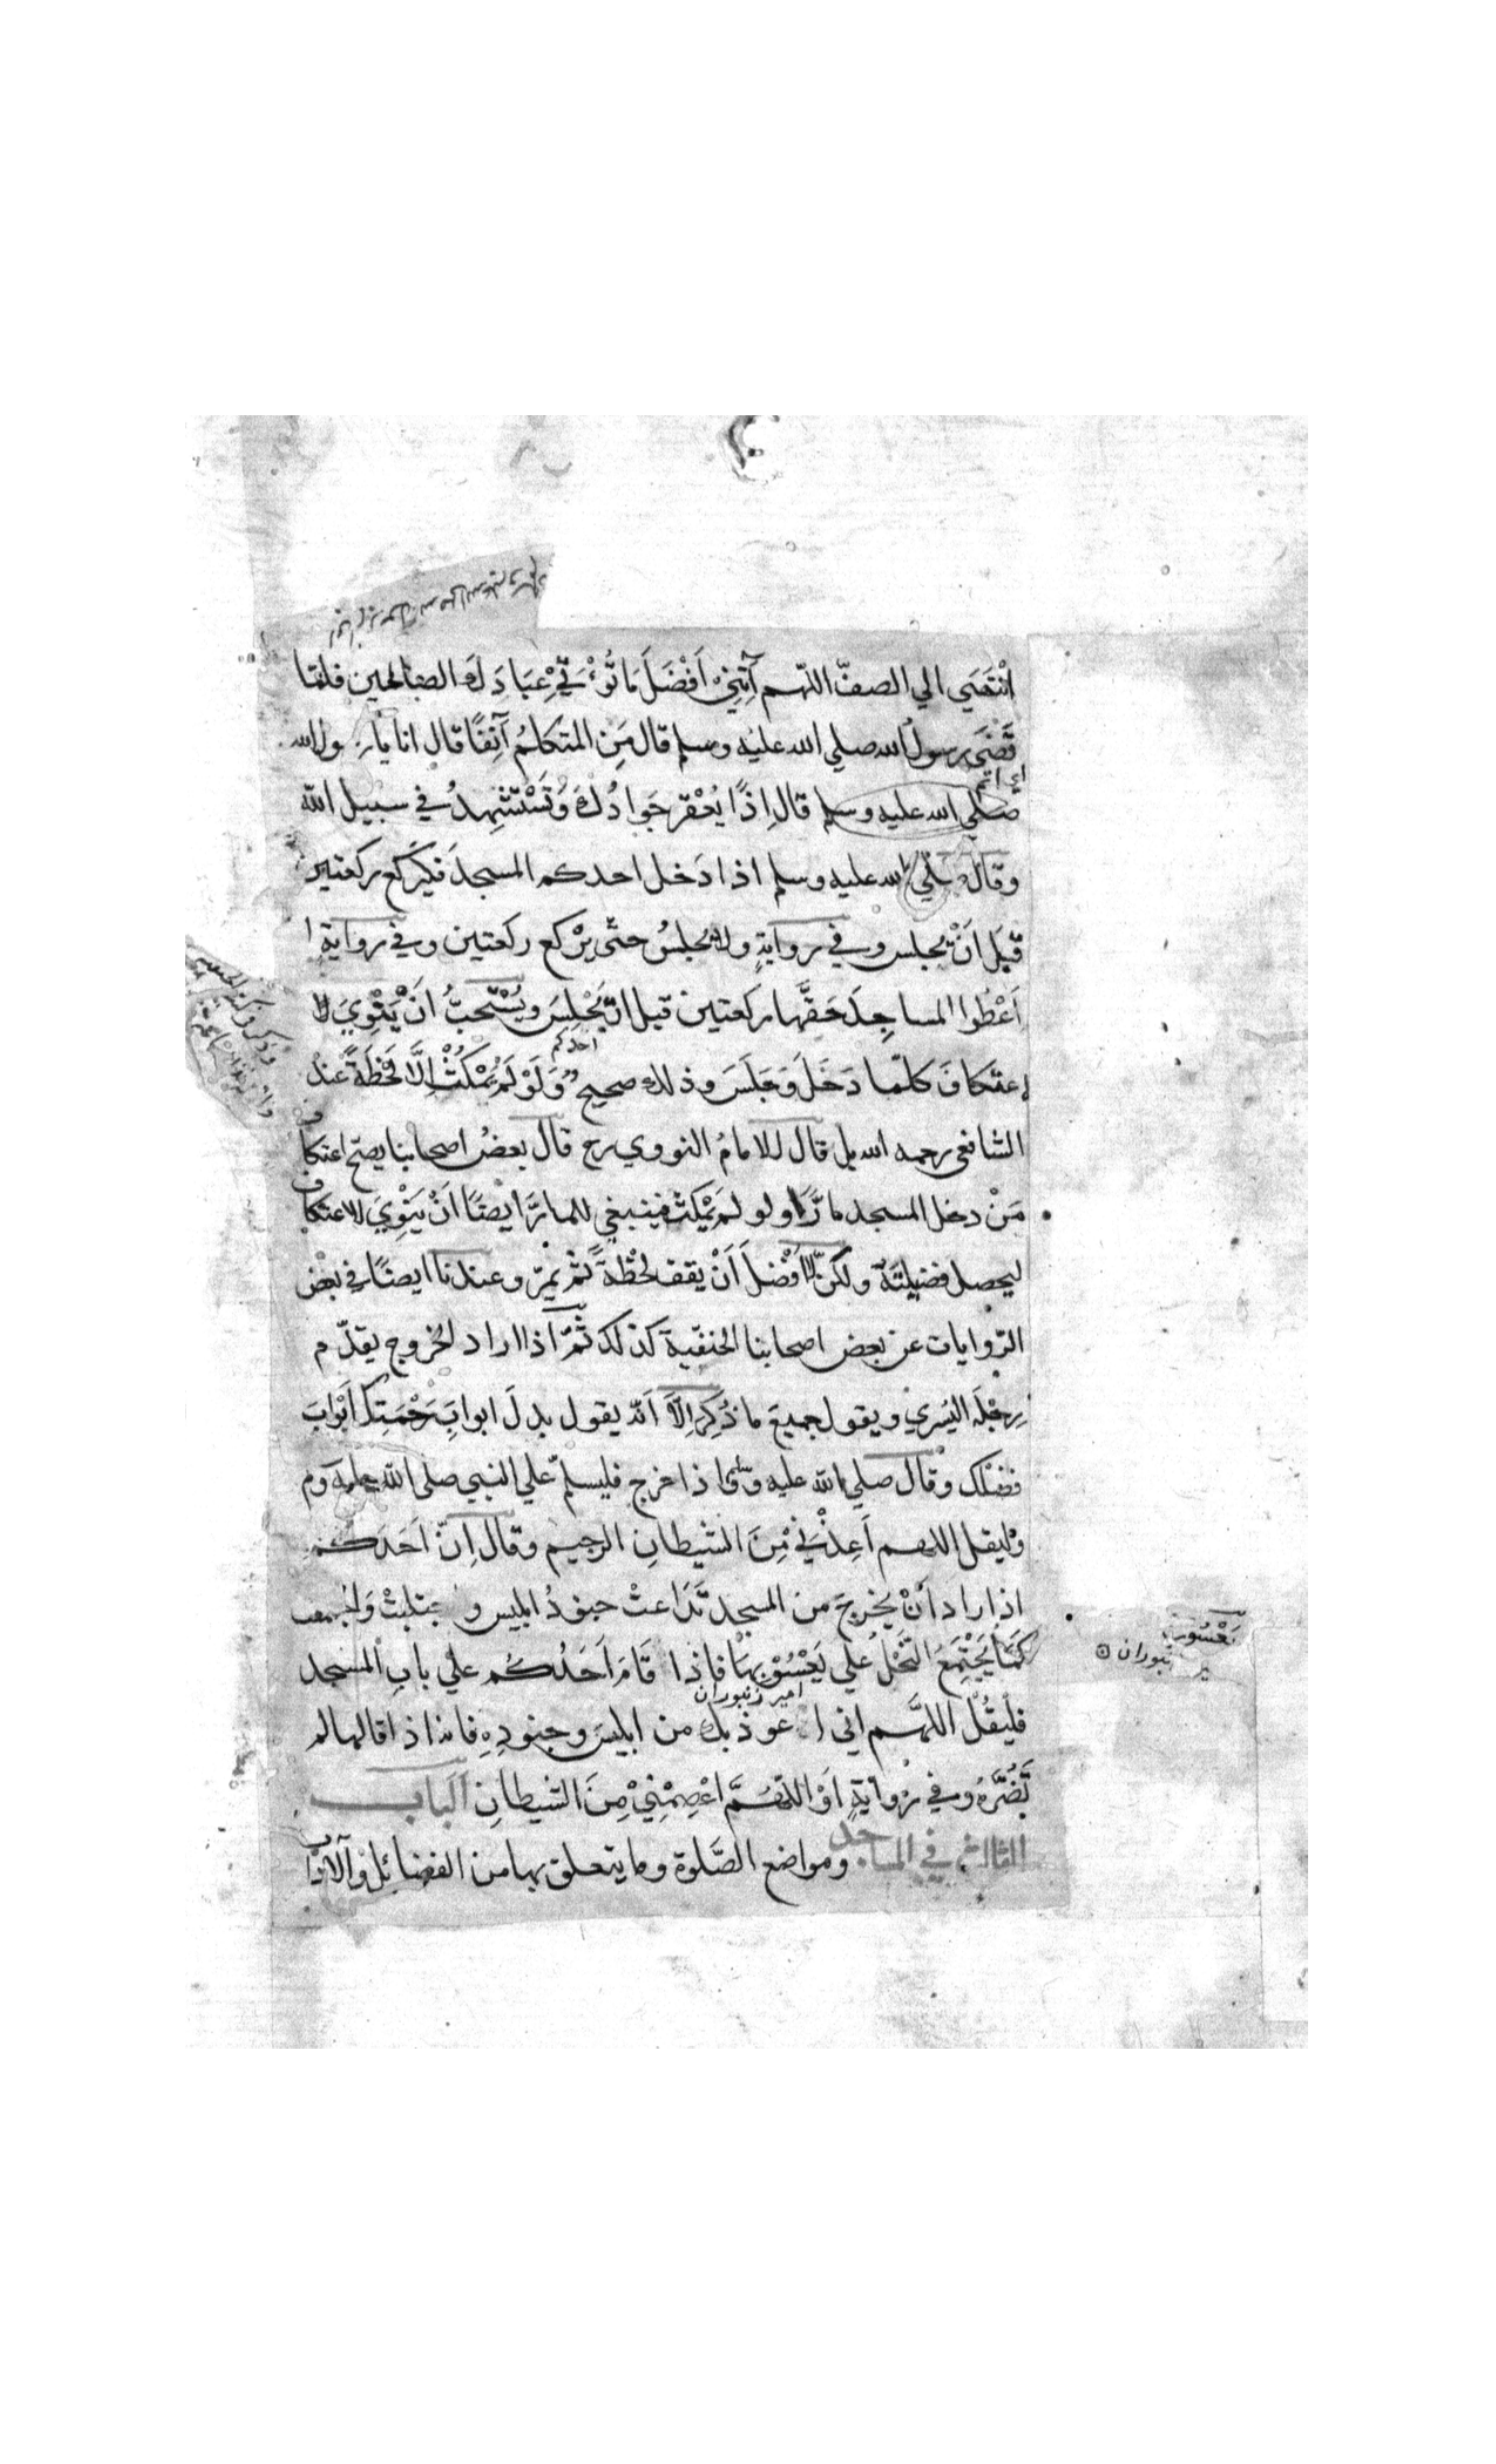 انْتَهَي الي الصفّ اللّهم آتِنِيْ اَفْضَلَ مَا تُؤْتِيْ عِبَادَكَ الصالحين فلمّا
قَضَيَ رسولُ الله صلي الله عليه وسلم قال مَنِ المتكلمُ آنِفًا قال انا يا رسول الله
صلي الله عليه وسلم قال اِذًا يُعْقر جَوادُكَ وَتَسْتَشْهِدُ في سبيل الله
وقال صلي الله عليه وسلم اذا دَخل احدكم المسجدَ فَيَرْكع ركعتين
قَبْلَ اَنْ يجلس وفي روايةٍ ولا يجلسُ حتّي يرْكع ركعتين وفي روايةٍ
اَعْطُوا المساجِدَ حَقَّها ركعتين قبل ان يَجْلِسَ ويُسْتَحبُّ اَنْ يَنْوِيَ الا
عتكافَ كلّما دَخَلَ وَجَلَسَ وذلك صحيح وَلَوْ لَمْ يَمْكُثْ اِلَّا لَحْظَةً عندَ
احدكم
الشافعي رحمه الله بل قال الامامُ النووي رح قال بعضُ اصحابنا يصحّ اعتكاف
مَنْ دخل المسجد مارًّا ولو لم يَمْكث فينبغي للمارّ ايضًا اَنْ يَنْوِيَ الاعتكاف
ليحصل فضيلتَهُ ولكنّ الاَفْضلَ اَنْ يقف لحْظةً ثمّ يمرّ وعندنا ايضًا في بعض
الرّوايات عن بعض اصحابنا الحنفية كذلك ثُمّ اذا اراد الخروج يقدّم
رِجْلَه اليُسْري ويقول جميعَ ما ذُكِرَ اِلَّا انّه يقول بدلَ ابوابِ رَحْمَتِكَ اَبْوَابَ
فضلك وقال صلي الله عليه وسلم اذا خرج فليسلّم علي النبي صلي الله عليه وم
وليقل اللهم اَعِذْنِيْ مِنَ الشيطانِ الرجيم وقال اِنّ اَحَدَكُمْ
اذا اراد اَنْ يخرجَ من المسجد تَدَاعتْ جنودُ ابليس و جتلبتْ واجتمعت
كَمَا يَجْتَمِعُ النَّحْلُ علي يَعْسُوْبِهَا فاذا قامَ اَحَدُكُم علي بابِ المسجد
امير زنبوران
فليقُلْ اللهَّم اني اعوذ بك من ابليسَ وجنودِهِ فانه اذا قالها لم
تَضُرَّهُ وفي روايةٍ اَوْ اللّهُمَّ اعْصِمْنِيْ مِنَ الشيطانِ الباب
الثالث في المساجد ومواضع الصَّلوة وما يتعلق بها من الفضائل والآداب
يَعْسُوب
زنبوران